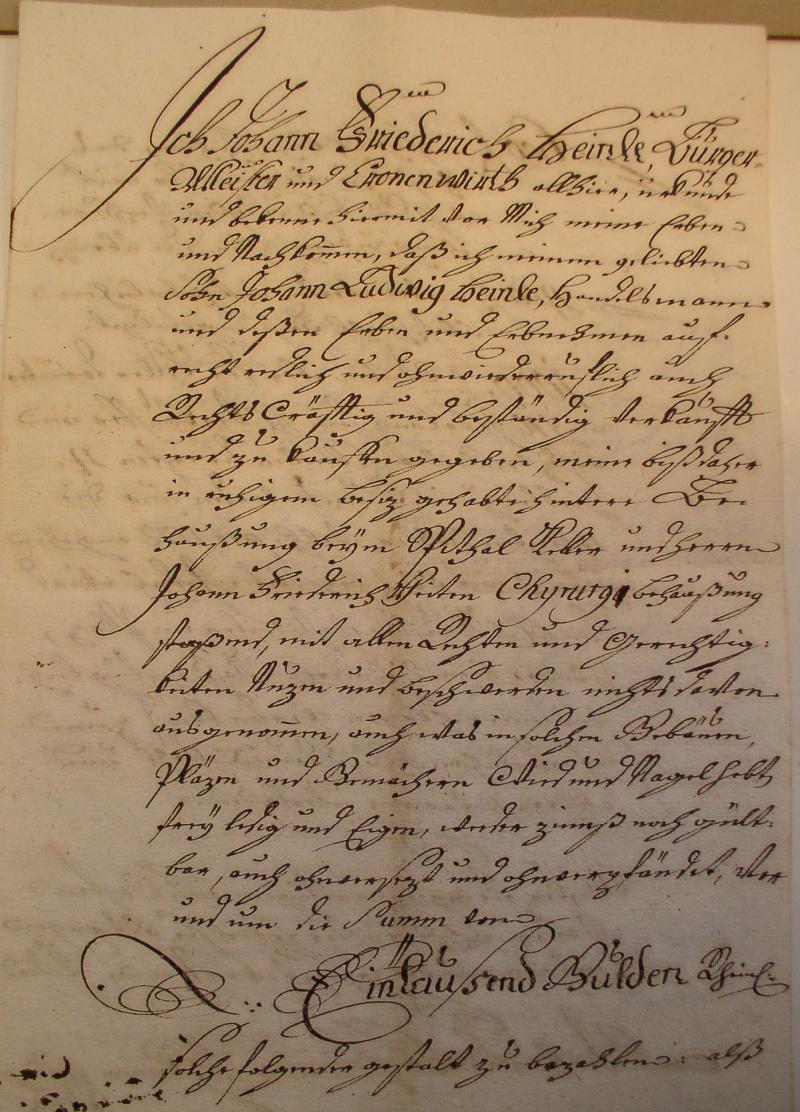 Ich Johann Friederich Heinle, Bürger-
Meister und Cronenwirth allhier, uhrkunde
und bekenne hiermit vor Mich meine Erben
und Nachkommen, daß ich meinem geliebten
Sohn Johann Ludwig Heinle, Handelsmann
und deßen Erben und Erbnehmen auf-
recht redlich und ohnwiederrüflich auch
Rechts Cräfftig und beständig verkaufft
und zu kauffen gegeben, meine biß daher
in ruhigem besiz gehabte hintere Be-
haußung beym Spithal Keller und Herrn
Johann Friederich Chyrurgi behaußung
stoßend, mit allen Rechten und Gerechtig-
keiten Nuzen und beschwerden nichts davon
ausgenommen, auch was in solchen Gebäuen,
Pläzen und Gemächern Wied und Nagel hebt
frey ledig und Eigen, weder zinnß noch gült-
bar, auch ohnversezt und ohnverpfändet, vor
und um die Summ von
Eintausend Gulden Rheinl.
solche folgender gestalt zu bezahlen: alß